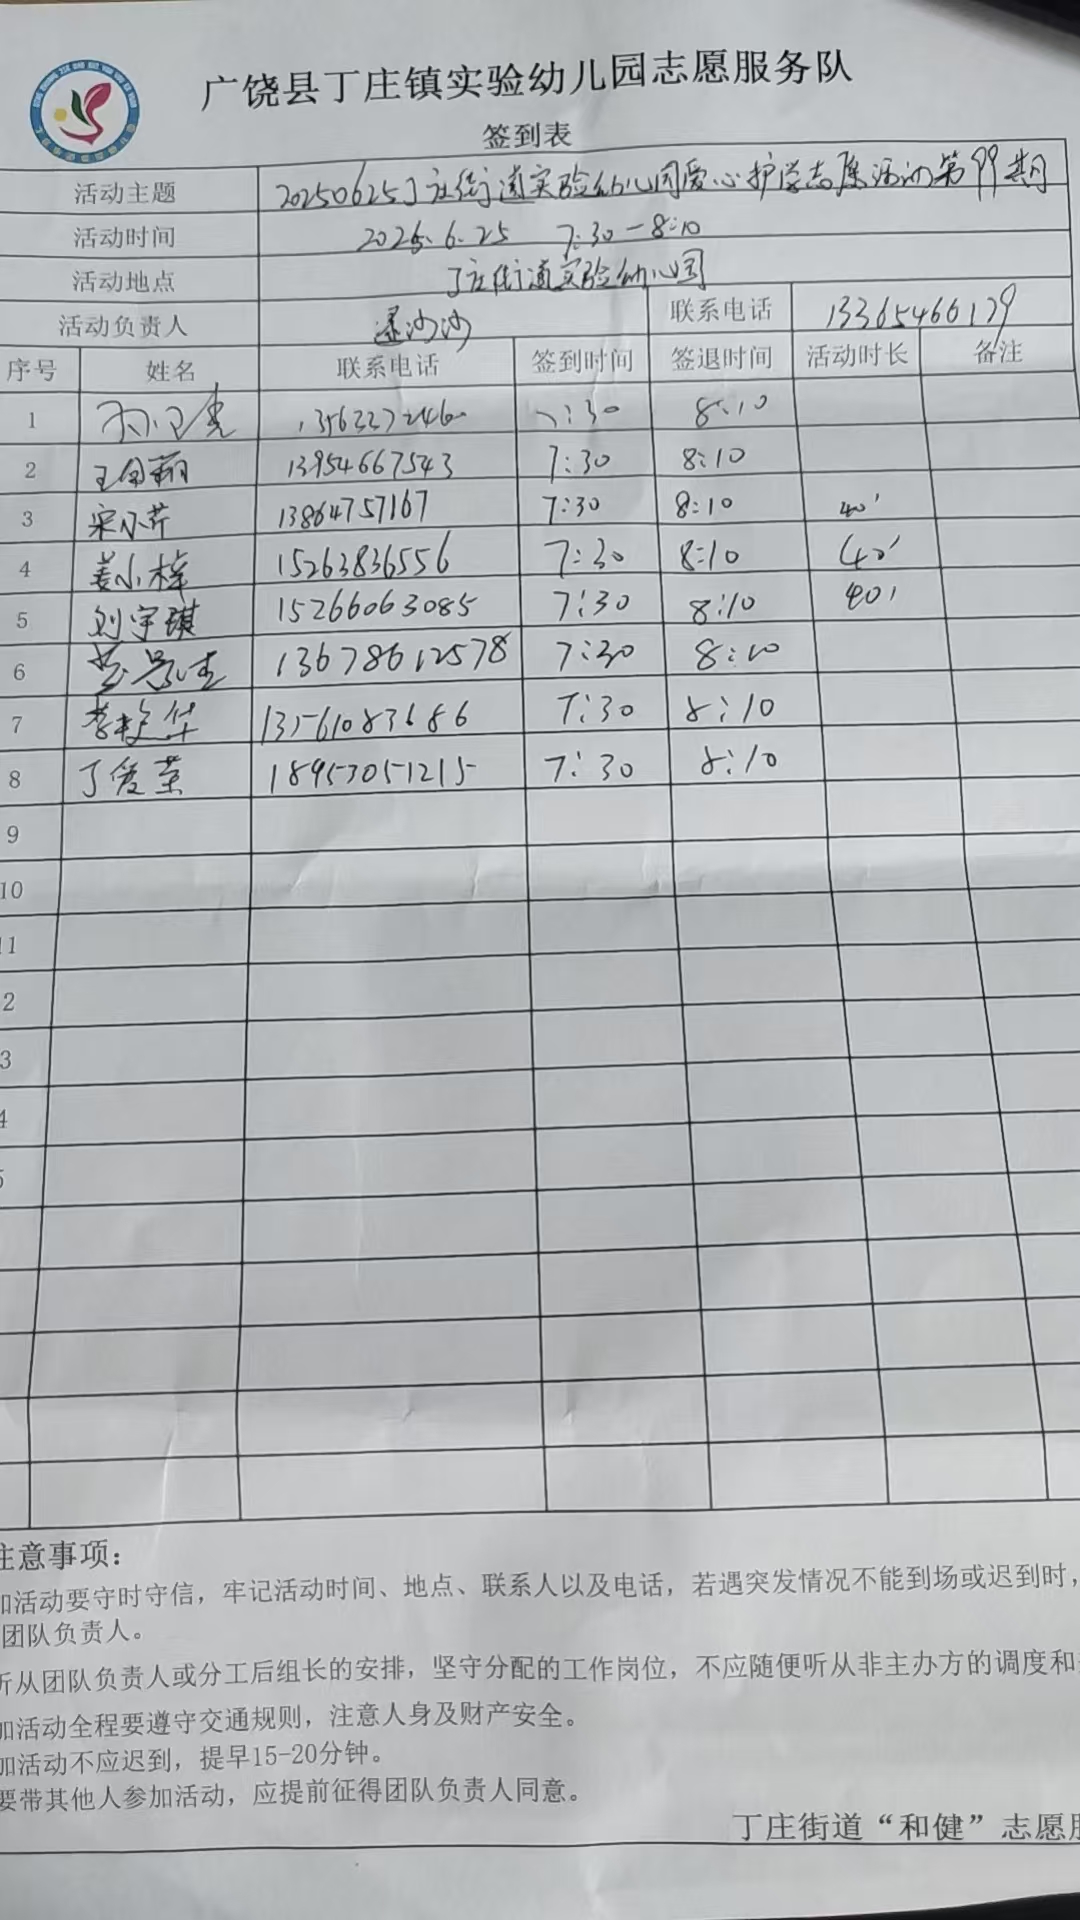 广饶县丁庄镇实验幼儿园志愿服务队
签到表
活动主题 20250625丁庄街道实验幼儿园爱心护学志愿活动第99期
活动时间 2025.6.25 7:30-8:10
活动地点 丁庄街道实验幼儿园
活动负责人 逯沙沙 联系电话 13365466179
序号 姓名 联系电话 签到时间 签退时间 活动时长 备注
1 8:10
2 13954667543 7:30 8:10
3 宋小芹 13864757167 7:30 8:10 40'
4 姜小梅 15263836556 7:30 8:10 40'
5 刘宇琪 15266063085 7:30 8:10 40'
6 13678612578 7:30 8:10
7 李艳华 13561083686 7:30 8:10
8 丁爱荣 18953051215 7:30 8:10
9
10
11
2
3
4
5
注意事项：
加活动要守时守信，牢记活动时间、地点、联系人以及电话，若遇突发情况不能到场或迟到时，
团队负责人。
听从团队负责人或分工后组长的安排，坚守分配的工作岗位，不应随便听从非主办方的调度和
加活动全程要遵守交通规则，注意人身及财产安全。
加活动不应迟到，提早15-20分钟。
要带其他人参加活动，应提前征得团队负责人同意。
丁庄街道“和健”志愿服